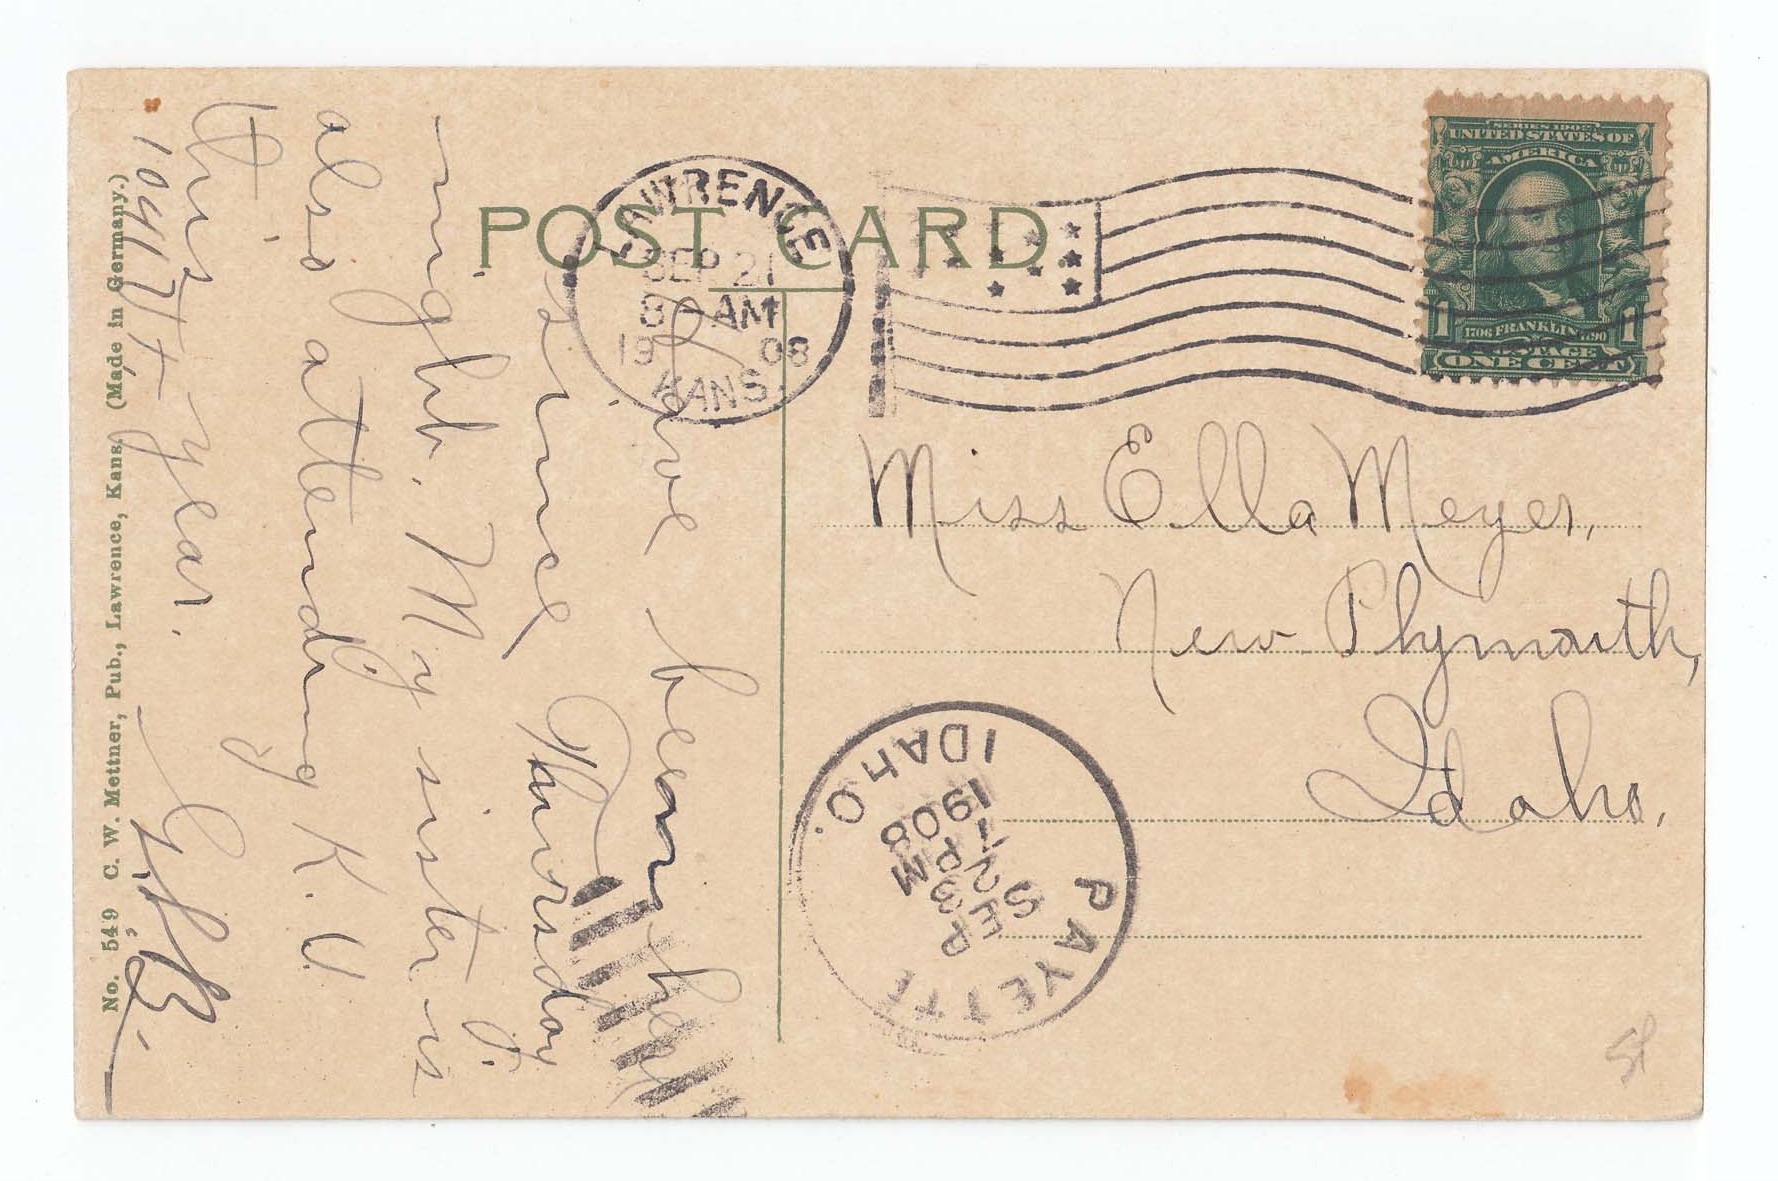 POST CARD
LAWRENCE
SEP 21
8 - AM
1908
KANS.
SERIES 1902
UNITED STATES OF
AMERICA
1 1706 FRANKLIN 1790 1
POSTAGE
ONE CENT
Miss Ella Meyer,
New Plymouth,
Idaho.
PAYETTE
SEP
23
PM
1908
IDAHO.
I have been here
since Thursday
night. My sister is
also attending K. U.
this year.
No. 549 C. W. Mettner, Pub., Lawrence, Kans. (Made in Germany.)